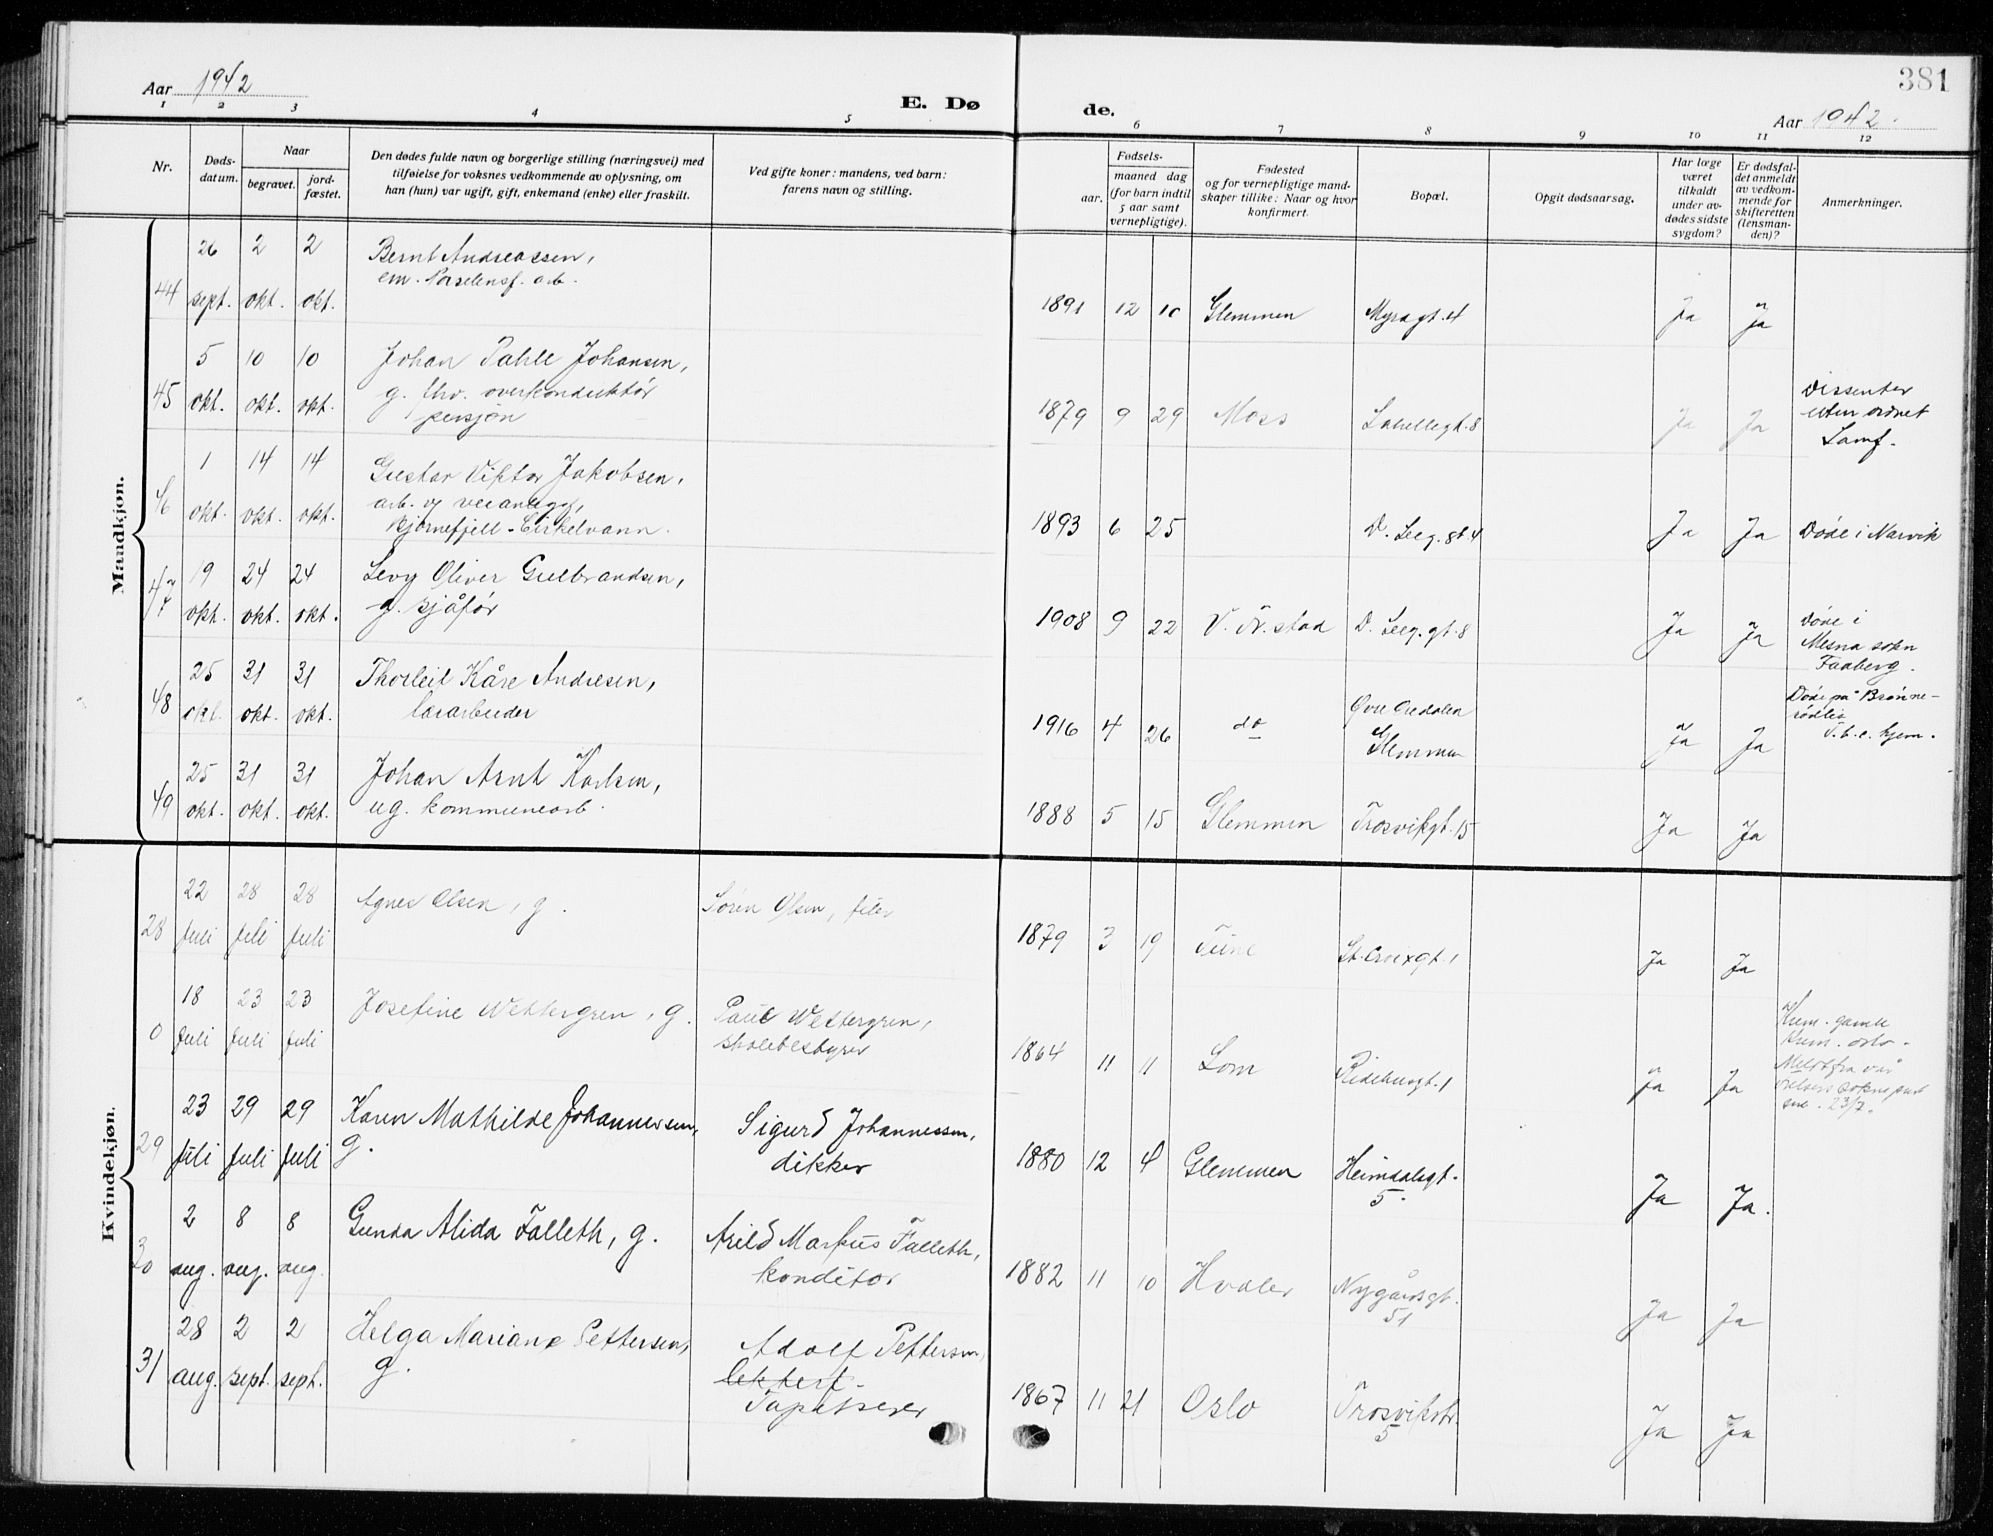 381
Aar 1942
E. Dø de.
Aar 1942.
1 2 3 4 5 6 7 8 9 10 11 12
Nr.
Døds-
datum.
Naar
begravet.
jord-
fæstet.
Den dødes fulde navn og borgerlige stilling (næringsvei) med
tilføielse for voksnes vedkommende av oplysning, om
han (hun) var ugift, gift, enkemand (enke) eller fraskilt.
Ved gifte koner: mandens, ved barn:
farens navn og stilling.
aar.
Fødsels-
maaned dag
(for barn indtil
5 aar samt
vernepligtige).
Fødested
og for vernepligtige mand-
skaper tillike: Naar og hvor
konfirmert.
Bopæl.
Opgit dødsaarsag.
Har læge
været
tilkaldt
under av-
dødes sidste
sygdom?
Er dødsfal-
det anmeldt
av vedkom-
mende for
skifteretten
(lensman-
den)?
Anmerkninger.
Mandkjøn.
26 2 2 Bernt Andreassen,
em. Porselensf. arb.
44 sept. okt. okt. 1891 12 10 Glemmen Myragt. 4 Ja Ja
5 10 10 Johan Pahle Johansen,
45 okt. okt. okt. g. fhv. overkonduktør
pensjon 1879 9 29 Moss Labellegt. 8 Ja Ja
Dissenter
uten ordnet
Samf.
1 14 14 Gustav Viktor Jakobsen,
46 okt. okt. okt. arb. v/ veianlegg,
Bjørnefjell - Cirkelvann. 1893 6 25 D. Leeg. gt. 4 Ja Ja Døde i Narvik
19 24 24 Levy Oliver Gulbrandsen,
47 okt. okt. okt. g. sjåfør 1908 9 22 V. Fr.stad D. Leeg. gt. 8 Ja Ja
Døde i
Mesna sokn
Faaberg.
25 31 31 Thorleif Kåre Andresen,
48 okt. okt. okt. lærarbeider 1916 4 26 do Øvre Oredalen
Glemmen Ja Ja
Døde på Brønne-
rødlia
T.b.c. hjem.
25 31 31 Johan Arnt Karlsen,
49 okt. okt. okt. ug. kommunearb. 1888 5 15 Glemmen Trosvikgt. 15 Ja Ja
Kvindekjøn.
22 28 28 Agnes Olsen, g. Søren Olsen, filer
28 juli juli juli 1879 3 19 Tune St. Croixgt. 1 Ja Ja
18 23 23 Josefine Wettergren, g. Paul Wettergren,
skolebestyrer
0 juli juli juli 1864 11 11 Lom Ridehusgt. 1 Ja Ja
Krem. gamle
Krem. Oslo.
Meldt fra vår
23/7.
23 29 29 Karen Mathilde Johannessen,
g. Sigurd Johannessen,
dikker
29 juli juli juli 1880 12 4 Glemmen Heimdalsgt.
5. Ja Ja.
2 8 8 Gunda Alida Falleth, g. Arild Markus Falleth,
konditor
30 aug. aug. aug. 1882 11 10 Hvaler Nygårdsgt.
51 Ja Ja
28 2 2 Helga Mariane Pettersen,
g. Adolf Pettersen,
Tapetserer
31 aug. sept. sept. 1867 11 21 Oslo Trosvikstr.
5 Ja Ja